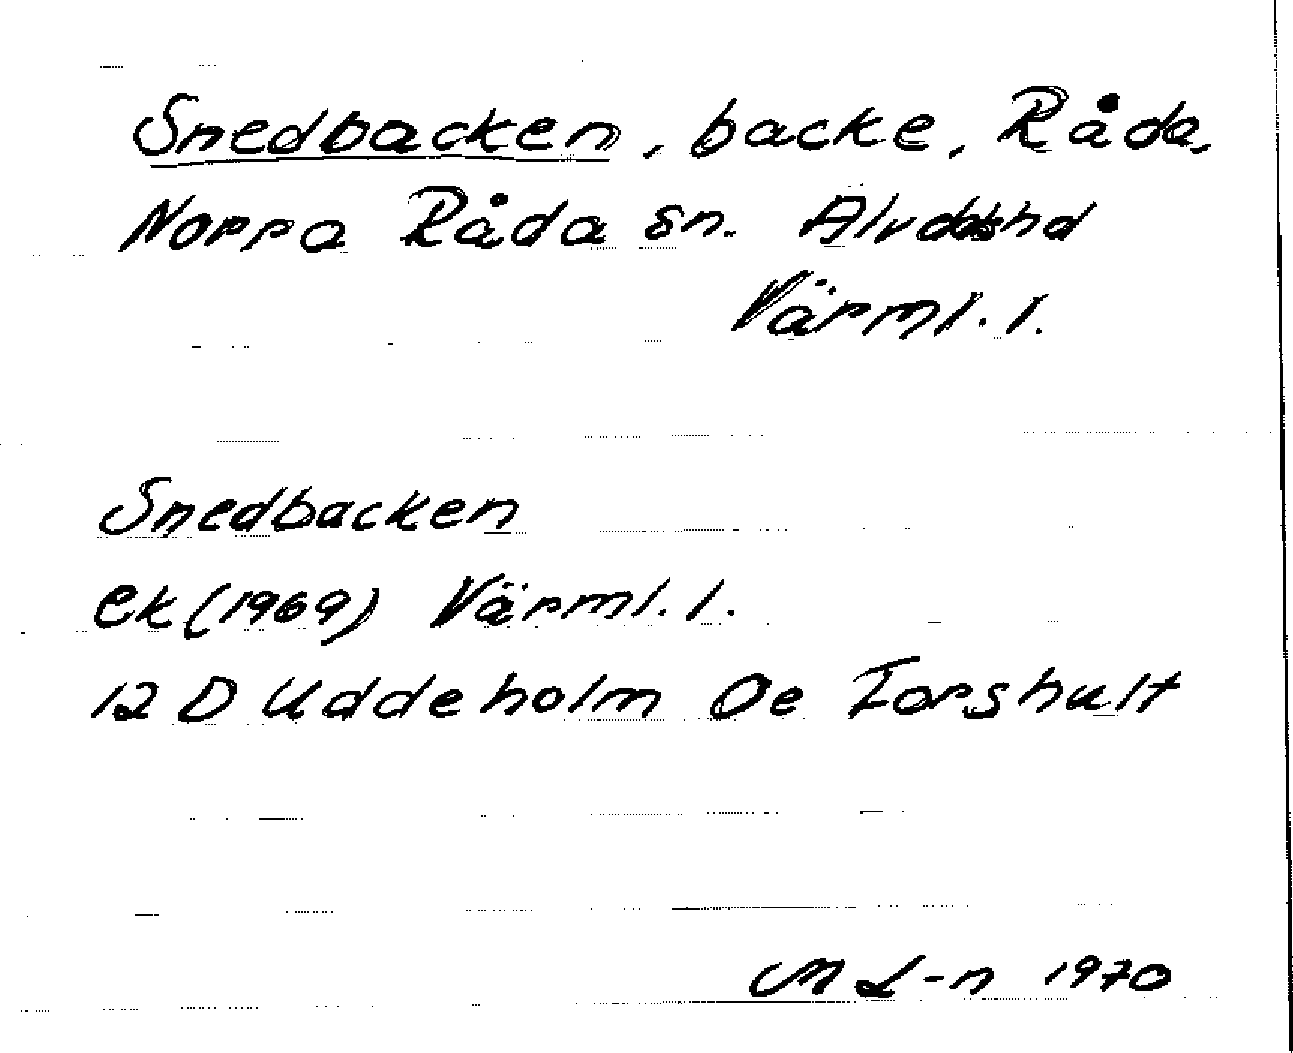 Snedbacken, backe, Råda,
Norra Råda sn. Älvdals hd
Värml. l.
Snedbacken
ek (1969) Värml. l.
12 D Uddeholm Oe Forshult
M L-n 1970